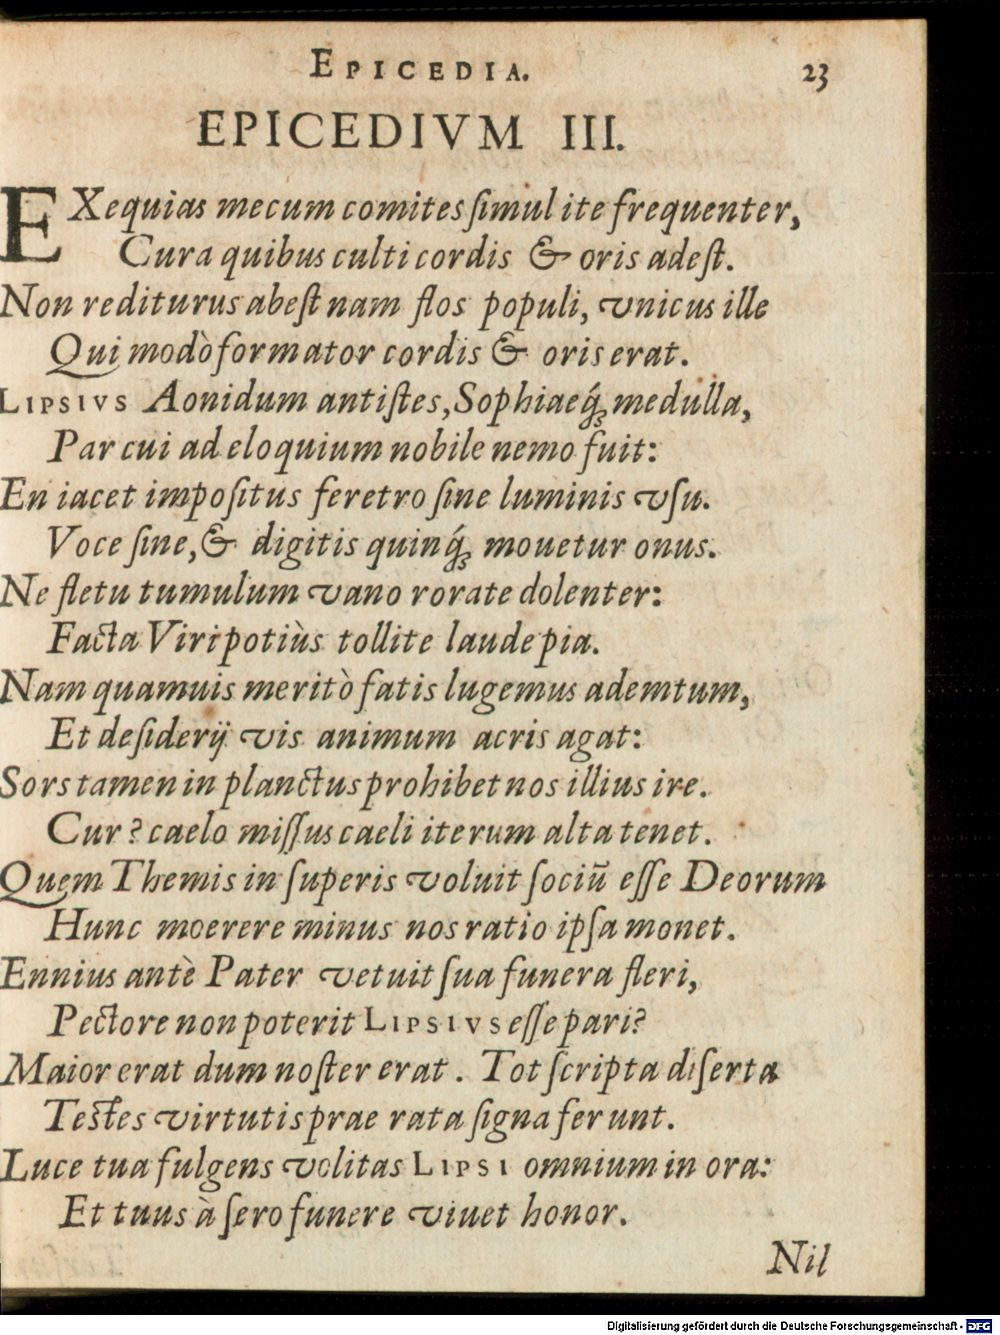 EPICEDIA. 23
EPICEDIVM III.
EXequias mecum comites ſimul ite frequenter,
Cura quibus culti cordis & oris adeſt.
Non rediturus abeſt nam flos populi, vnicus ille
Qui modò formator cordis & oris erat.
LIPSIVS Aonidum antiſtes, Sophiaeq́; medulla,
Par cui ad eloquium nobile nemo fuit:
En iacet impoſitus feretro ſine luminis vſu.
Voce ſine, & digitis quinq́; mouetur onus.
Ne fletu tumulum vano rorate dolenter:
Facta Viri potiùs tollite laude pia.
Nam quamuis meritò fatis lugemus ademtum,
Et deſiderij vis animum acris agat:
Sors tamen in planctus prohibet nos illius ire.
Cur? caelo miſſus caeli iterum alta tenet.
Quem Themis in ſuperis voluit ſociū eſſe Deorum
Hunc moerere minus nos ratio ipſa monet.
Ennius antè Pater vetuit ſua funera fleri,
Pectore non poterit LIPSIVS eſſe pari?
Maior erat dum noſter erat. Tot ſcripta diſerta
Teſtes virtutis prae rata ſigna ferunt.
Luce tua fulgens volitas LIPSI omnium in ora:
Et tuus à ſero funere viuet honor.
Nil
Digitalisierung gefördert durch die Deutsche Forschungsgemeinschaft - DFG